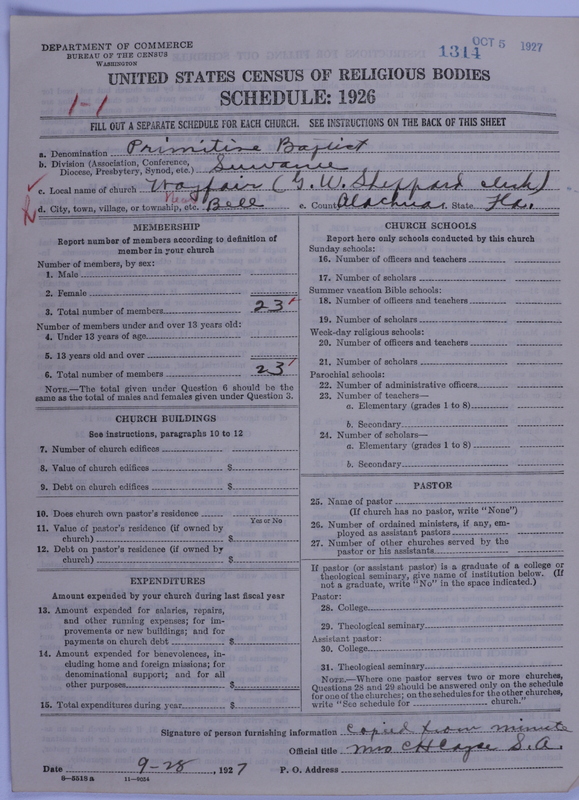 DEPARTMENT OF COMMERCE
BUREAU OF THE CENSUS
WASHINGTON
1314 OCT 5 1927
UNITED STATES CENSUS OF RELIGIOUS BODIES
SCHEDULE: 1926
1-1
FILL OUT A SEPARATE SCHEDULE FOR EACH CHURCH. SEE INSTRUCTIONS ON THE BACK OF THIS SHEET
a. Denomination Primitive Baptist
b. Division (Association, Conference, Diocese, Presbytery, Synod, etc.) Suwanie
c. Local name of church Wayfair (G. W. Sheppard clerk)
d. City, town, village, or township, etc. Near Bell e. County Alachua f. State Fla.
MEMBERSHIP
Report number of members according to definition of
member in your church
Number of members, by sex:
1. Male
2. Female
3. Total number of members 23
Number of members under and over 13 years old:
4. Under 13 years of age
5. 13 years old and over
6. Total number of members 23
NOTE.—The total given under Question 6 should be the
same as the total of males and females given under Question 3.
CHURCH BUILDINGS
See instructions, paragraphs 10 to 12
7. Number of church edifices
8. Value of church edifices $
9. Debt on church edifices $
10. Does church own pastor's residence
Yes or No
11. Value of pastor's residence (if owned by
church) $
12. Debt on pastor's residence (if owned by
church) $
EXPENDITURES
Amount expended by your church during last fiscal year
13. Amount expended for salaries, repairs,
and other running expenses; for im-
provements or new buildings; and for
payments on church debt $
14. Amount expended for benevolences, in-
cluding home and foreign missions; for
denominational support; and for all
other purposes $
15. Total expenditures during year $
CHURCH SCHOOLS
Report here only schools conducted by this church
Sunday schools:
16. Number of officers and teachers
17. Number of scholars
Summer vacation Bible schools:
18. Number of officers and teachers
19. Number of scholars
Week-day religious schools:
20. Number of officers and teachers
21. Number of scholars
Parochial schools:
22. Number of administrative officers
23. Number of teachers—
a. Elementary (grades 1 to 8)
b. Secondary
24. Number of scholars—
a. Elementary (grades 1 to 8)
b. Secondary
PASTOR
25. Name of pastor
(If church has no pastor, write "None")
26. Number of ordained ministers, if any, em-
ployed as assistant pastors
27. Number of other churches served by the
pastor or his assistants
If pastor (or assistant pastor) is a graduate of a college or
theological seminary, give name of institution below. (If
not a graduate, write "No" in the space indicated.)
Pastor:
28. College
29. Theological seminary
Assistant pastor:
30. College
31. Theological seminary
NOTE.—Where one pastor serves two or more churches,
Questions 28 and 29 should be answered only on the schedule
for one of the churches; on the schedules for the other churches,
write "See schedule for church."
Signature of person furnishing information copied from minute
Official title Mrs C H Cayce S. A.
Date 9-28, 1927 P. O. Address
8-5518 a 11-9054